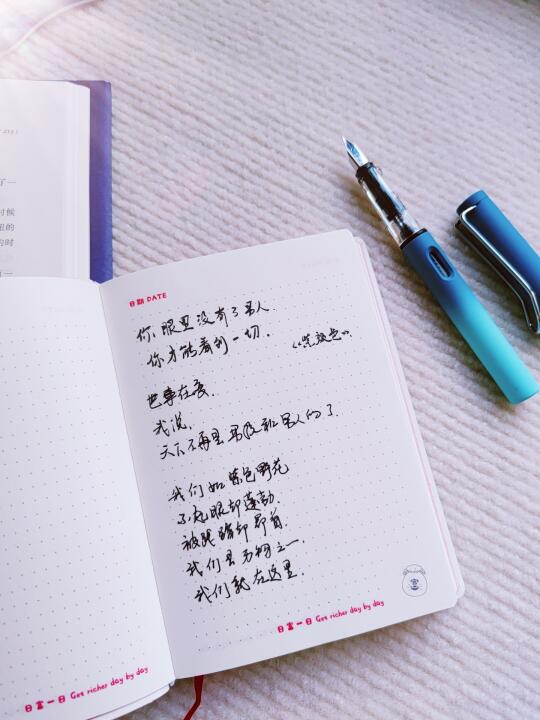 了一
时候
的
的时
日富一日 Get richer day by day
日期 DATE
你眼里没有了男人
你才能看到一切. 《紫颜色》
世事在变.
我说,
天下不再是 和男人的了.
我们如紫色野花
不起眼却蓬勃.
被踩踏却昂首.
我们是万物之一
我们就在这里.
日富一日 Get richer day by day